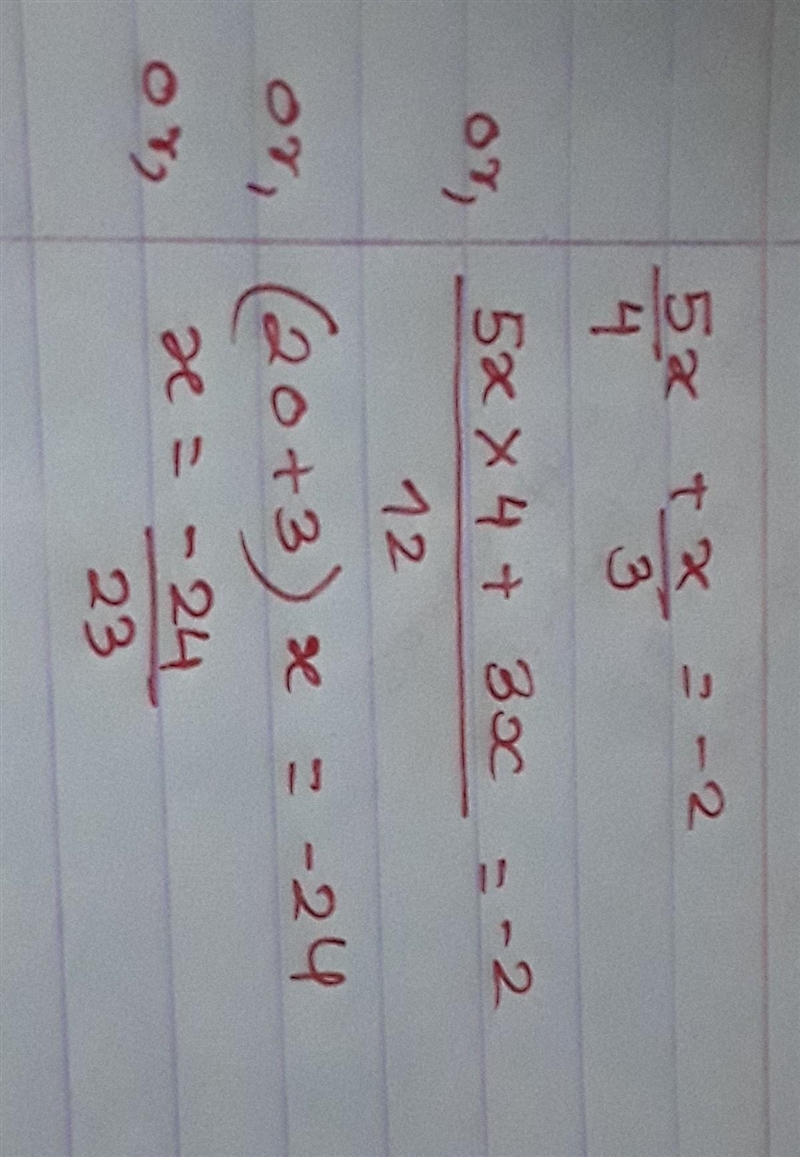 5/4 x + x/3 = -2
or, (5x × 4 + 3x)/12 = -2
or, (20+3) x = -24
or, x = -24/23